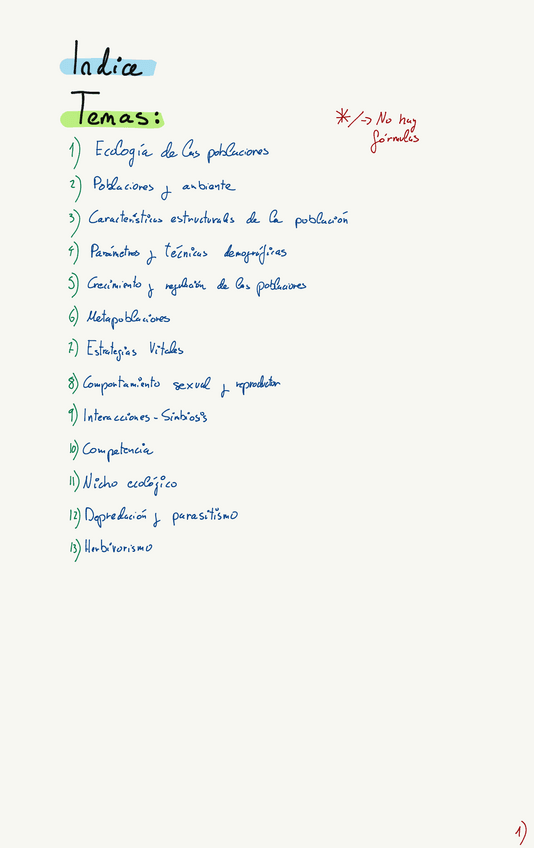 Indice
Temas:
*/-> No hay
fórmulas
1) Ecología de las poblaciones
2) Poblaciones y ambiente
3) Características estructurales de la población
4) Parámetros y técnicas demográficas
5) Crecimiento y regulación de las poblaciones
6) Metapoblaciones
7) Estrategias Vitales
8) Comportamiento sexual y reproductor
9) Interacciones - Simbiosis
10) Competencia
11) Nicho ecológico
12) Depredación y parasitismo
13) Herbivorismo
1)